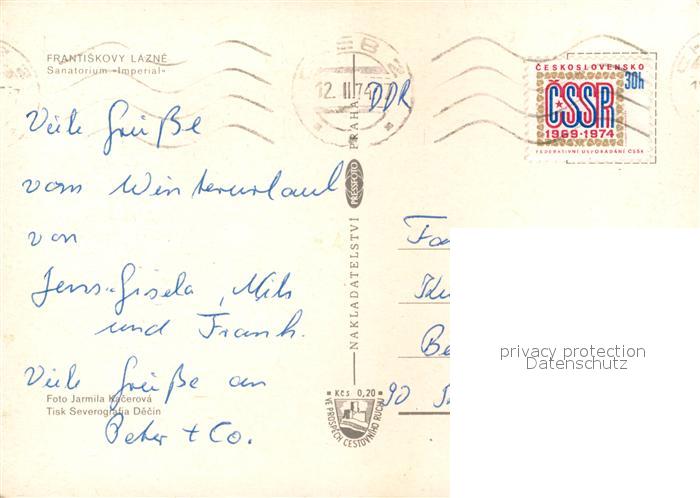 FRANTIŠKOVY LÁZNĚ
Sanatorium »Imperial«
Viele Grüße
vom Winterurlaub
von
Jens-Gisela, Mils
und Frank.
Viele Grüße an
Peter + Co.
Foto Jarmila Kačerová
Tisk Severografia Děčín
NAKLADATELSTVÍ PRESSFOTO PRAHA
Kčs 0,20
VE PROSPĚCH CESTOVNÍHO RUCHU
12. II. 74
DDR
ČESKOSLOVENSKO
30h
ČSSR
1969-1974
FEDERATIVNÍ USPOŘÁDÁNÍ ČSSR
Fa
Be
90
privacy protection
Datenschutz